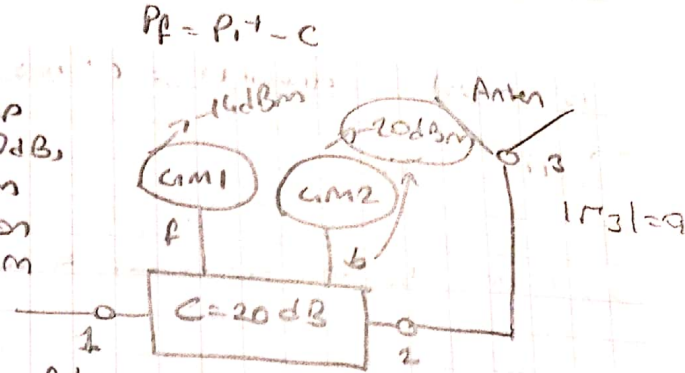 Pf = P1+ - C
P
0dB,
m
m
m
-14dBm
-20dBm
Anten
GM1
GM2
3
|Γ3|=a
f
b
C=20dB
1
2